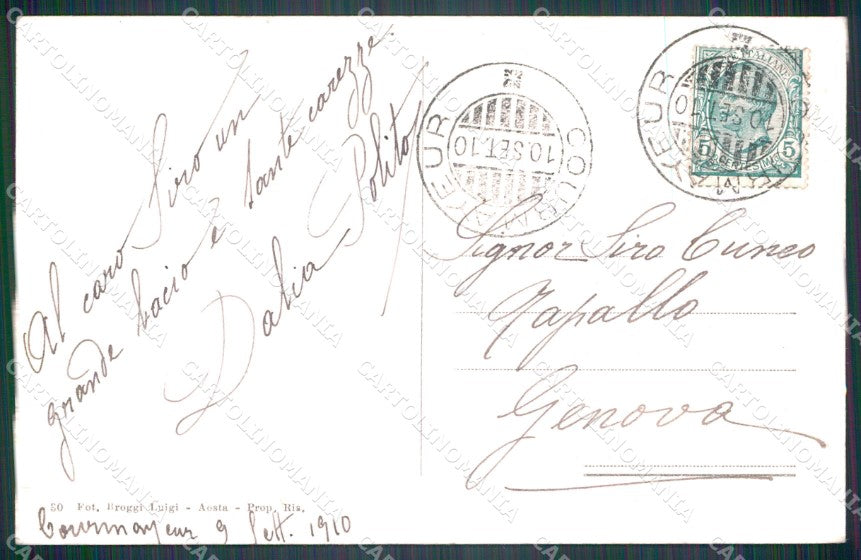 Al caro Siro un
grande bacio e tante carezze.
Dalia Polito
COURMAYEUR
10 SET. 10
COURMAYEUR
10 SET. 10
5 5
Signor Siro Cuneo
Rapallo
Genova
50 Fot. Broggi Luigi - Aosta - Prop. Ris.
Courmayeur 9 Sett. 1910
CARTOLINOMANIA